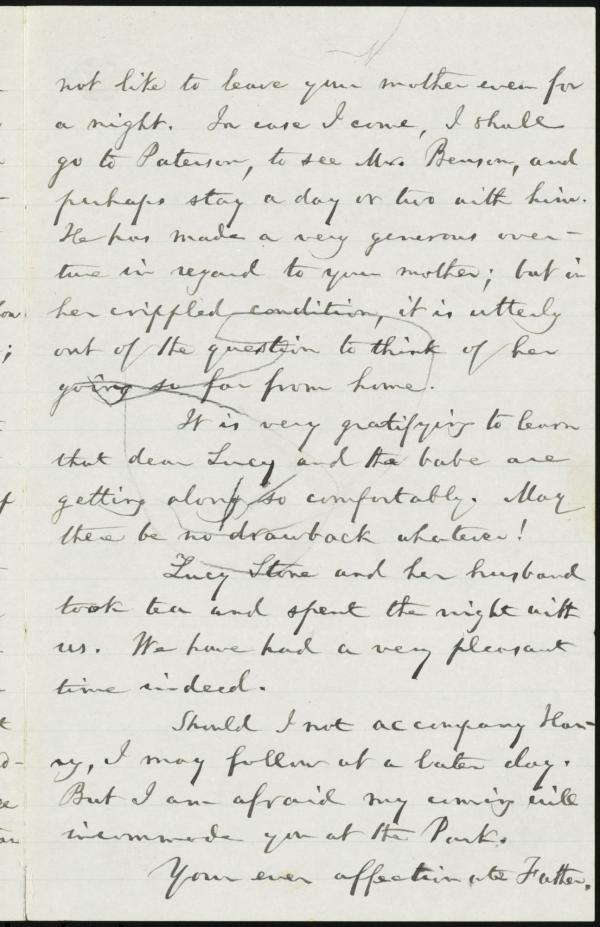 not like to leave your mother even for
a night. In case I come, I shall
go to Paterson, to see Mr. Benson, and
perhaps stay a day or two with him.
He has made a very generous over-
ture in regard to your mother; but in
her crippled condition, it is utterly
out of the question to think of her
going so far from home.
It is very gratifying to learn
that dear Lucy and the babe are
getting along so comfortably. May
there be no drawback whatever!
Lucy Stone and her husband
took tea and spent the night with
us. We have had a very pleasant
time indeed.
Should I not accompany Har-
ry, I may follow at a later day.
But I am afraid my coming will
incommode you at the Park.
Your ever affectionate Father.